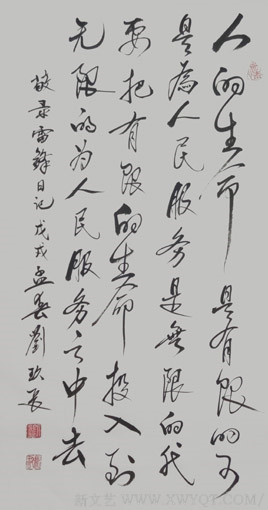 人的生命是有限的可
是為人民服务是無限的我
要把有限的生命投入到
无限的为人民服务之中去
敬录雷鋒日记戊戌孟春劉
新文艺